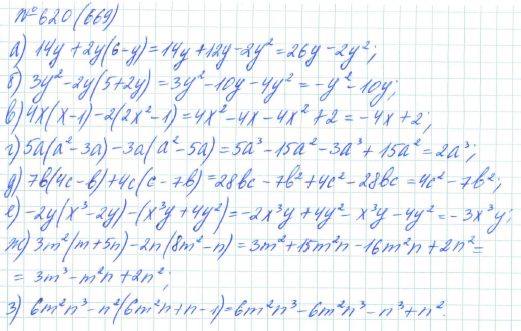 №620 (669)
а) 14y + 2y(6-y) = 14y + 12y - 2y² = 26y - 2y²;
б) 3y² - 2y(5+2y) = 3y² - 10y - 4y² = -y² - 10y;
в) 4x(x-1) - 2(2x²-1) = 4x² - 4x - 4x² + 2 = -4x + 2;
г) 5a(a²-3a) - 3a(a²-5a) = 5a³ - 15a² - 3a³ + 15a² = 2a³;
д) 7b(4c-b) + 4c(c-7b) = 28bc - 7b² + 4c² - 28bc = 4c² - 7b²;
е) -2y(x³-2y) - (x³y+4y²) = -2x³y + 4y² - x³y - 4y² = -3x³y;
ж) 3m²(m+5n) - 2n(8m²-n) = 3m² + 15m²n - 16m²n + 2n² =
= 3m³ - m²n + 2n²;
з) 6m²n³ - n²(6m²n+n-1) = 6m²n³ - 6m²n³ - n³ + n².